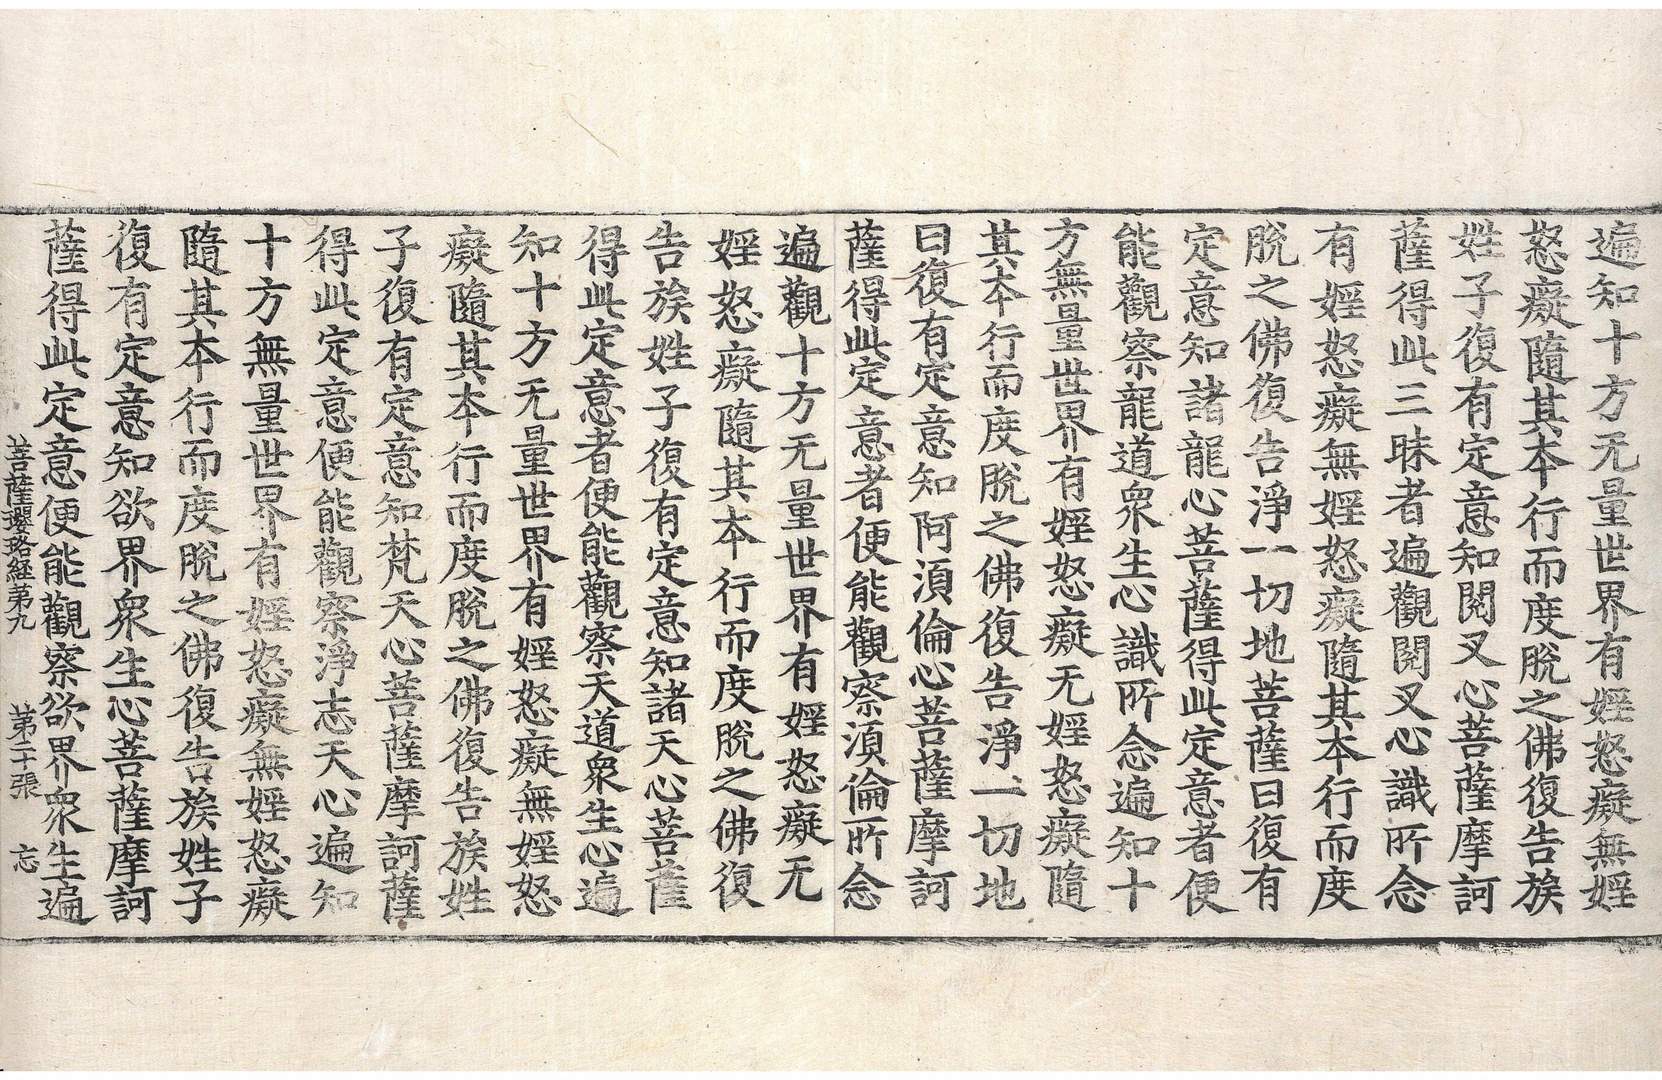 遍知十方无量世界有婬怒癡無婬
怒癡隨其本行而度脫之佛復告族
姓子復有定意知閱叉心菩薩摩訶
薩得此三昧者遍觀閱叉心識所念
有婬怒癡無婬怒癡隨其本行而度
脫之佛復告淨一切地菩薩曰復有
定意知諸龍心菩薩得此定意者便
能觀察龍道衆生心識所念遍知十
方無量世界有婬怒癡无婬怒癡隨
其本行而度脫之佛復告淨一切地
曰復有定意知阿湏倫心菩薩摩訶
薩得此定意者便能觀察湏倫所念
遍觀十方无量世界有婬怒癡无
婬怒癡隨其本行而度脫之佛復
告族姓子復有定意知諸天心菩薩
得此定意者便能觀察天道衆生心遍
知十方无量世界有婬怒癡無婬怒
癡隨其本行而度脫之佛復告族姓
子復有定意知梵天心菩薩摩訶薩
得此定意便能觀察淨志天心遍知
十方無量世界有婬怒癡無婬怒癡
隨其本行而度脫之佛復告族姓子
復有定意知欲界衆生心菩薩摩訶
薩得此定意便能觀察欲界衆生遍
菩薩瓔珞経第九 第二十張 忘